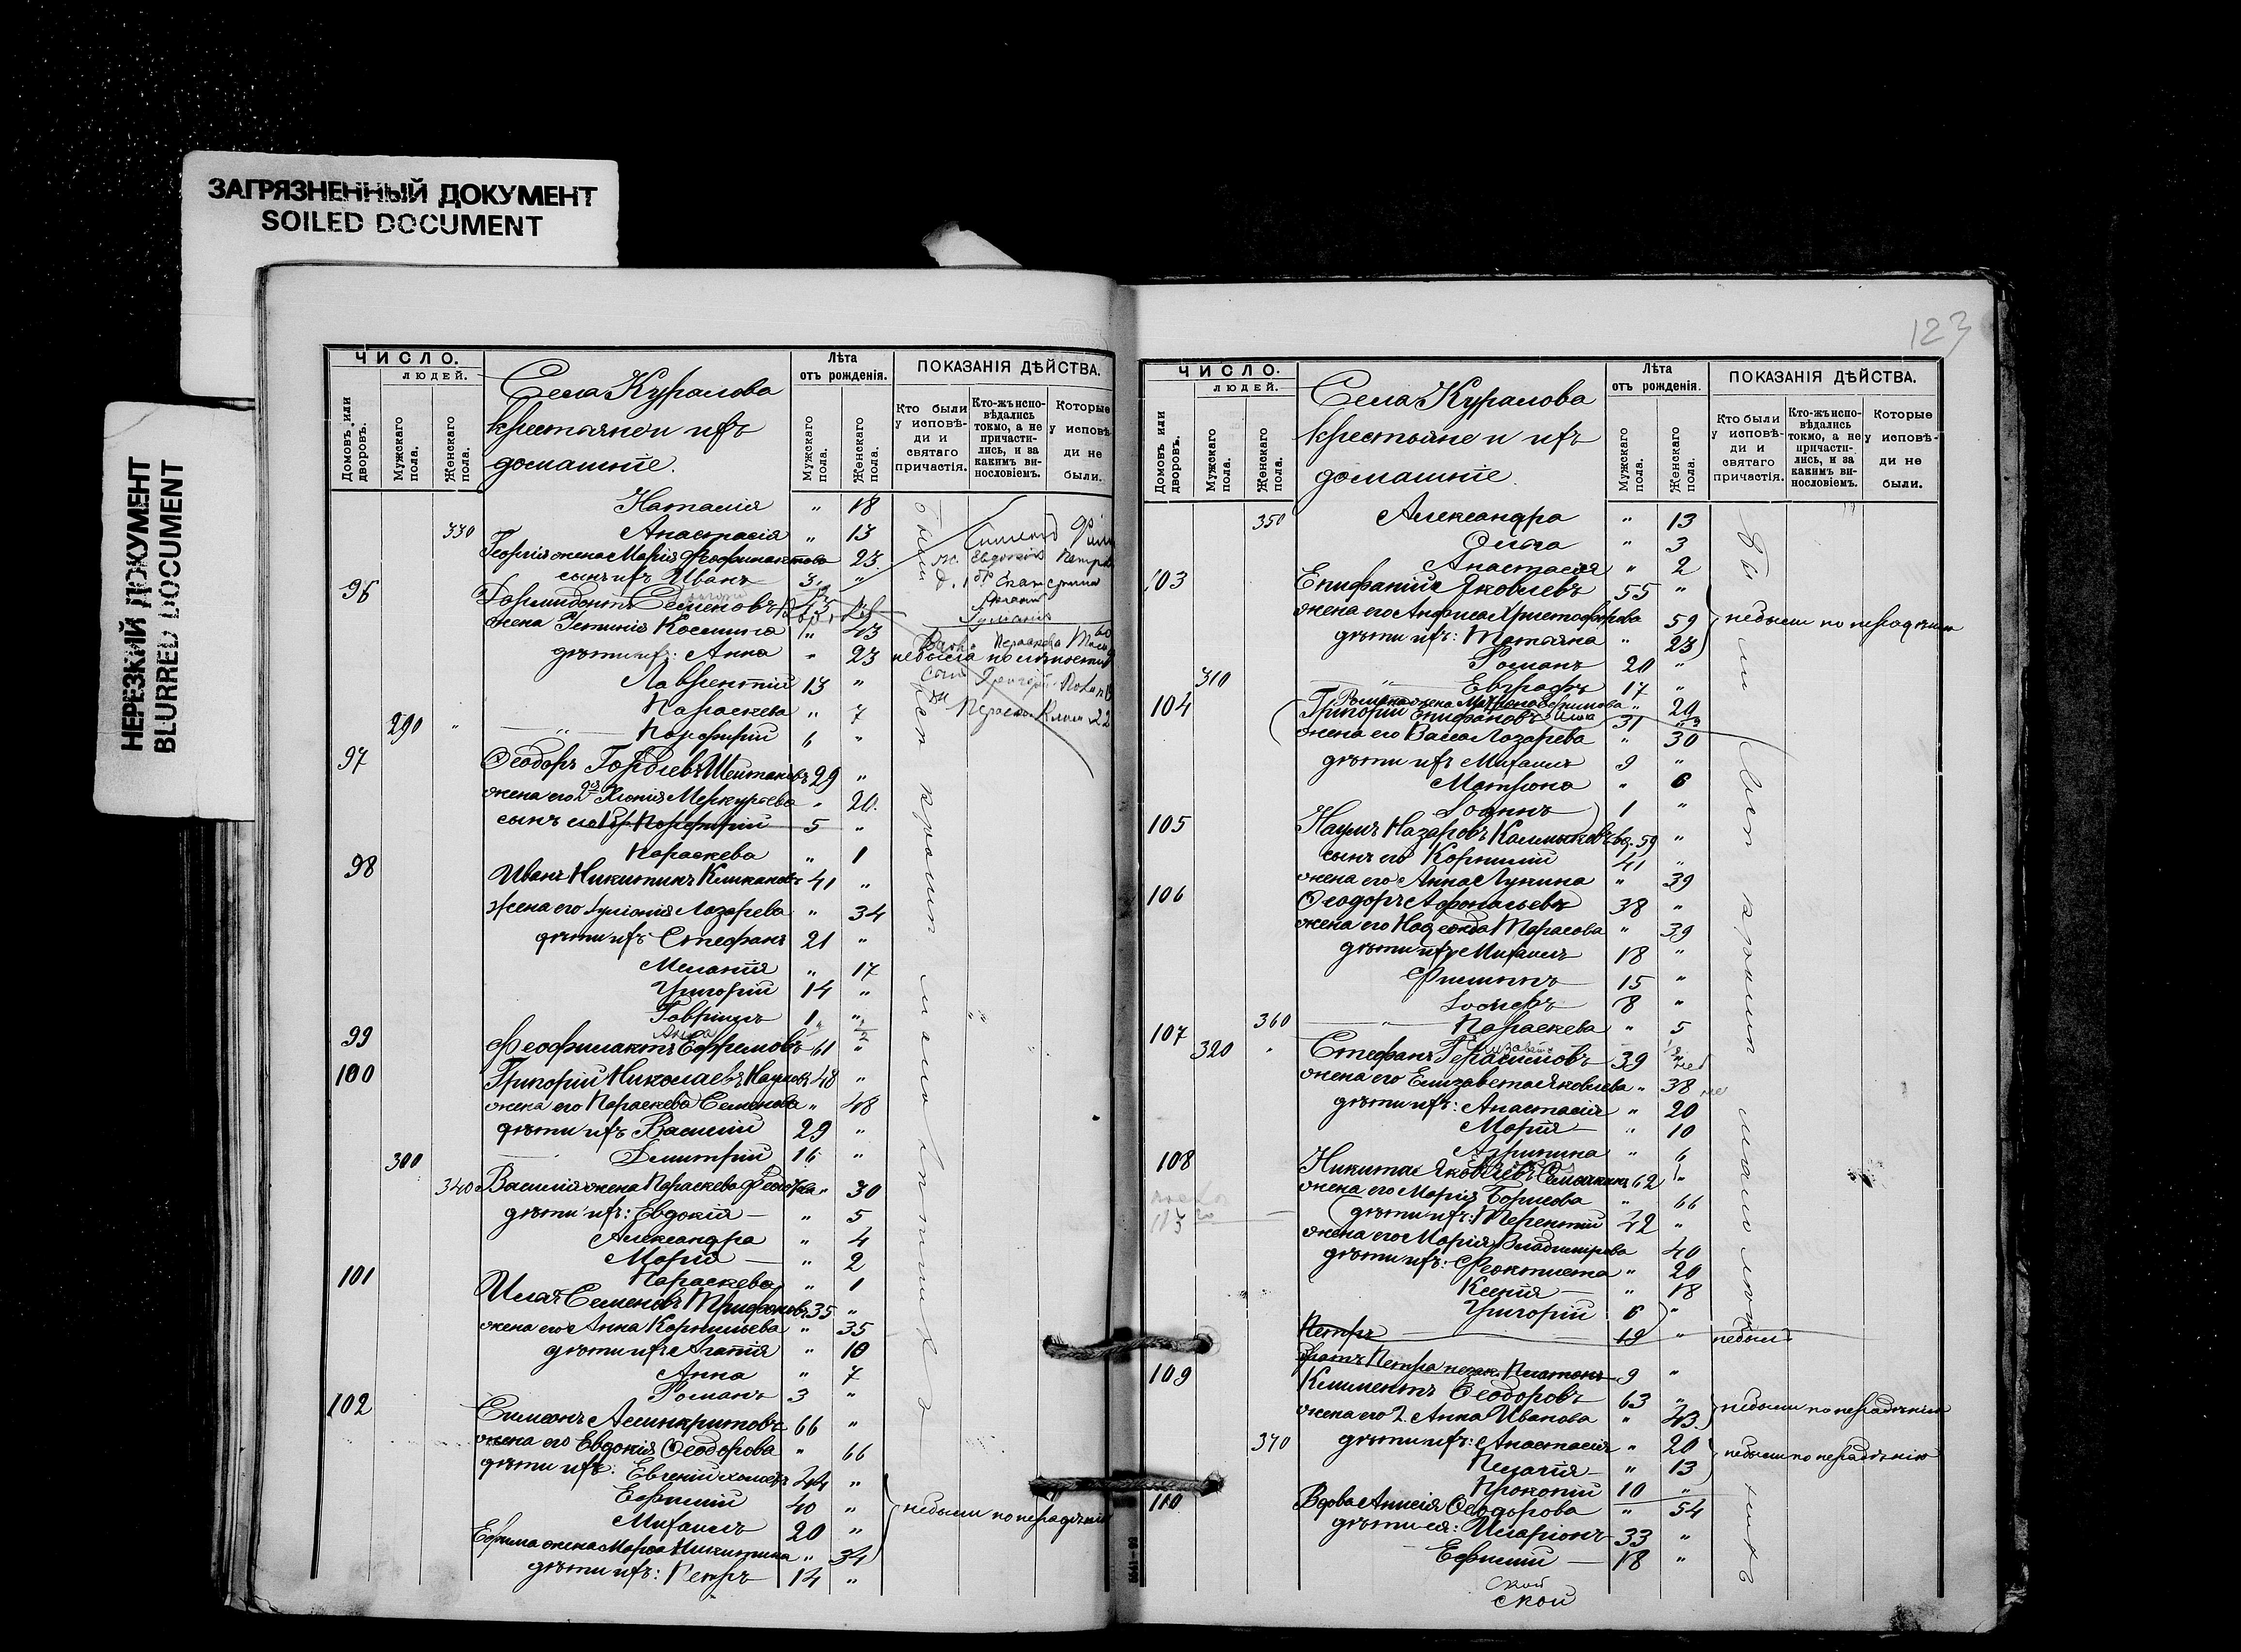 ЗАГРЯЗНЕННЫЙ ДОКУМЕНТ
SOILED DOCUMENT
НЕРЕЗКИЙ ДОКУМЕНТ
BLURRED DOCUMENT
ЧИСЛО.
ЛЮДЕЙ.
Домовъ или дворовъ.
Мужскаго пола.
Женскаго пола.
Села Куралова
крестьяне и ихъ
домашніе.
Лѣта
отъ рожденія.
Мужскаго пола.
Женскаго пола.
ПОКАЗАНІЯ ДѢЙСТВА.
Кто были у исповѣди и святаго причастія.
Кто-жъ исповѣдались токмо, а не причастились, и за какимъ винословіемъ.
Которые у исповѣди не были.
Наталія " 18
330 Анастасія " 13
Георгія жена Марія Феофилактова 23
сынъ ихъ Иванъ 3 "
96 Дормидонтъ Семеновъ 45
жена Устинія Космина " 43
дѣти ихъ: Анна " 23 небыла по лѣности
Лаврентій 13 "
Параскева " 7
290 " Порфирій 6 "
97 Ѳеодоръ Гордѣевъ Шеитановъ 29 "
жена его 2я Хіонія Меркурьева " 20.
сынъ его Порфирій 5 "
Параскева " 1
98 Иванъ Никитинъ Клиkановъ 41 "
жена его Іуліанія Лазарева " 34
дѣти ихъ Стефанъ 21 "
Меланія " 17
Григорій 14 "
Гавріилъ 1 "
Анна
99 Феофилактъ Ефремовъ 61 "
100 Григорій Николаевъ Наумовъ 48 "
жена его Параскева Семенова " 48
дѣти ихъ Василій 29 "
300 Димитрій 16 "
340 Василія жена Параскева " 30
дѣти ихъ: Евдокія " 5
Александра " 4
Марія " 2
Параскева " 1
101 Илья Семеновъ Трифоновъ 35 "
жена его Анна Корнильева " 35
дѣти ихъ Агапія " 10
Анна " 7
Романъ 3 "
102 Симеонъ Асинкритовъ 66 "
жена его Евдокія Ѳеодорова " 66
дѣти ихъ: Евгеній холостъ 44 "
Ефимій 40 "
Михаилъ 20 " небыли по нерадѣнію
Ефима жена Марѳа Никитина " 34
дѣти ихъ: Петръ 14 "
123
ЧИСЛО.
ЛЮДЕЙ.
Домовъ или дворовъ.
Мужскаго пола.
Женскаго пола.
Села Куралова
крестьяне и ихъ
домашніе.
Лѣта
отъ рожденія.
Мужскаго пола.
Женскаго пола.
ПОКАЗАНІЯ ДѢЙСТВА.
Кто были у исповѣди и святаго причастія.
Кто-жъ исповѣдались токмо, а не причастились, и за какимъ винословіемъ.
Которые у исповѣди не были.
350 Александра " 13
Ольга " 3
Анастасія " 2
103 Епифаній Яковлевъ 55 "
жена его Анфиса Христофорова 59 небыли по нерадѣнію
дѣти ихъ: Татьяна " 23
Романъ 20 "
310 Евграфъ 17 "
Романа жена Матрена Ефимова " 20
104 Григорій Епифановъ 31
жена его Васса Лазарева " 30
дѣти ихъ Михаилъ 9 "
Матрона " 6
Іоаннъ 1 "
105 Наумъ Назаровъ Калмыковъ вд. 59 "
сынъ его Корнилій 41 "
жена его Анна Лукина " 39
106 Ѳеодоръ Афонасьевъ 38 "
жена его Надежда Тарасова " 39
дѣти ихъ Михаилъ 18 "
Филиппъ 15 "
Іосифъ 8 "
360 Параскева " 5
Елизавета
107 320 " Стефанъ Герасимовъ 39
жена его Елизавета Яковлева " 38
дѣти ихъ: Анастасія " 20
Марія " 10
Агрипина " 6
108 Никита Яковлевъ 62 "
жена его Марія Борисова " 66
дѣти ихъ: Терентій 42 "
жена его Марія Владимірова 40
дѣти ихъ: Феоктиста " 20
Ксенія " 18
Григорій 6 "
Петръ 19 " небылъ
братъ Петра незак. Платонъ 9 "
109 Климентъ Ѳеодоровъ 63 "
жена его 2. Анна Иванова " 43 небыли по нерадѣнію
370 дѣти ихъ: Анастасія " 20
Пелагія " 13 небыли по нерадѣнію
Прокопій 10 "
110 Вдова Анисія Ѳеодорова " 54
дѣти ея: Иларіонъ 33 "
Ефимій 18 "
ской
ской